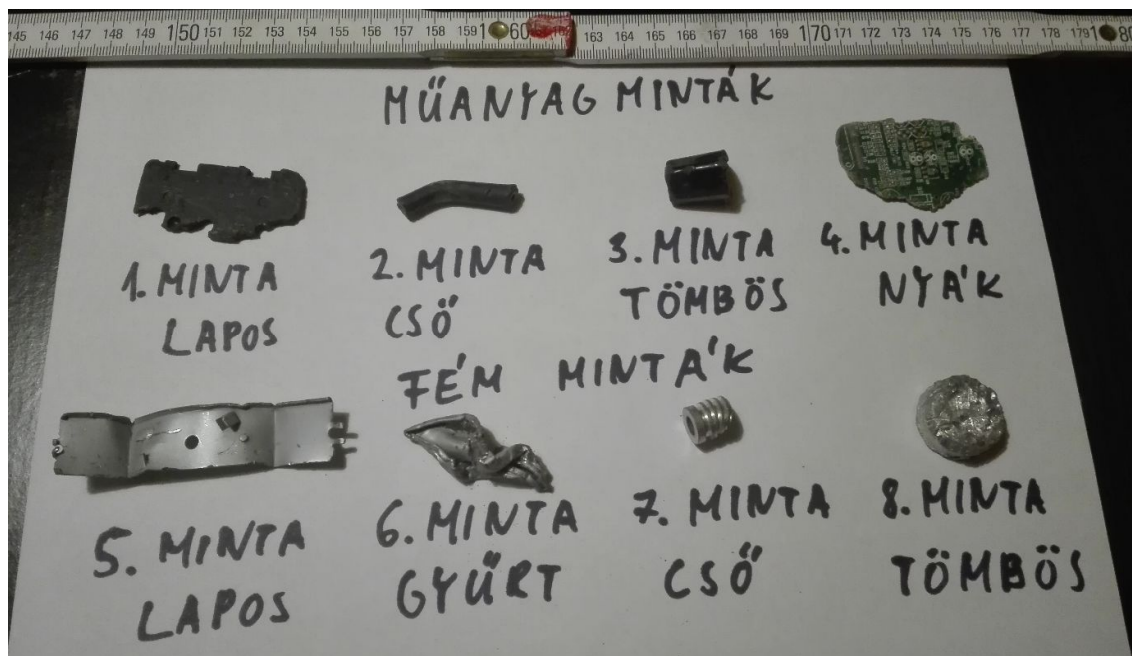 145 146 147 148 149 150 151 152 153 154 155 156 157 158 159 160 163 164 165 166 167 168 169 170 171 172 173 174 175 176 177 178 179 180
MŰANYAG MINTÁK
1. MINTA
LAPOS
2. MINTA
CSŐ
3. MINTA
TÖMBÖS
4. MINTA
NYÁK
FÉM MINTÁK
5. MINTA
LAPOS
6. MINTA
GYŰRT
7. MINTA
CSŐ
8. MINTA
TÖMBÖS